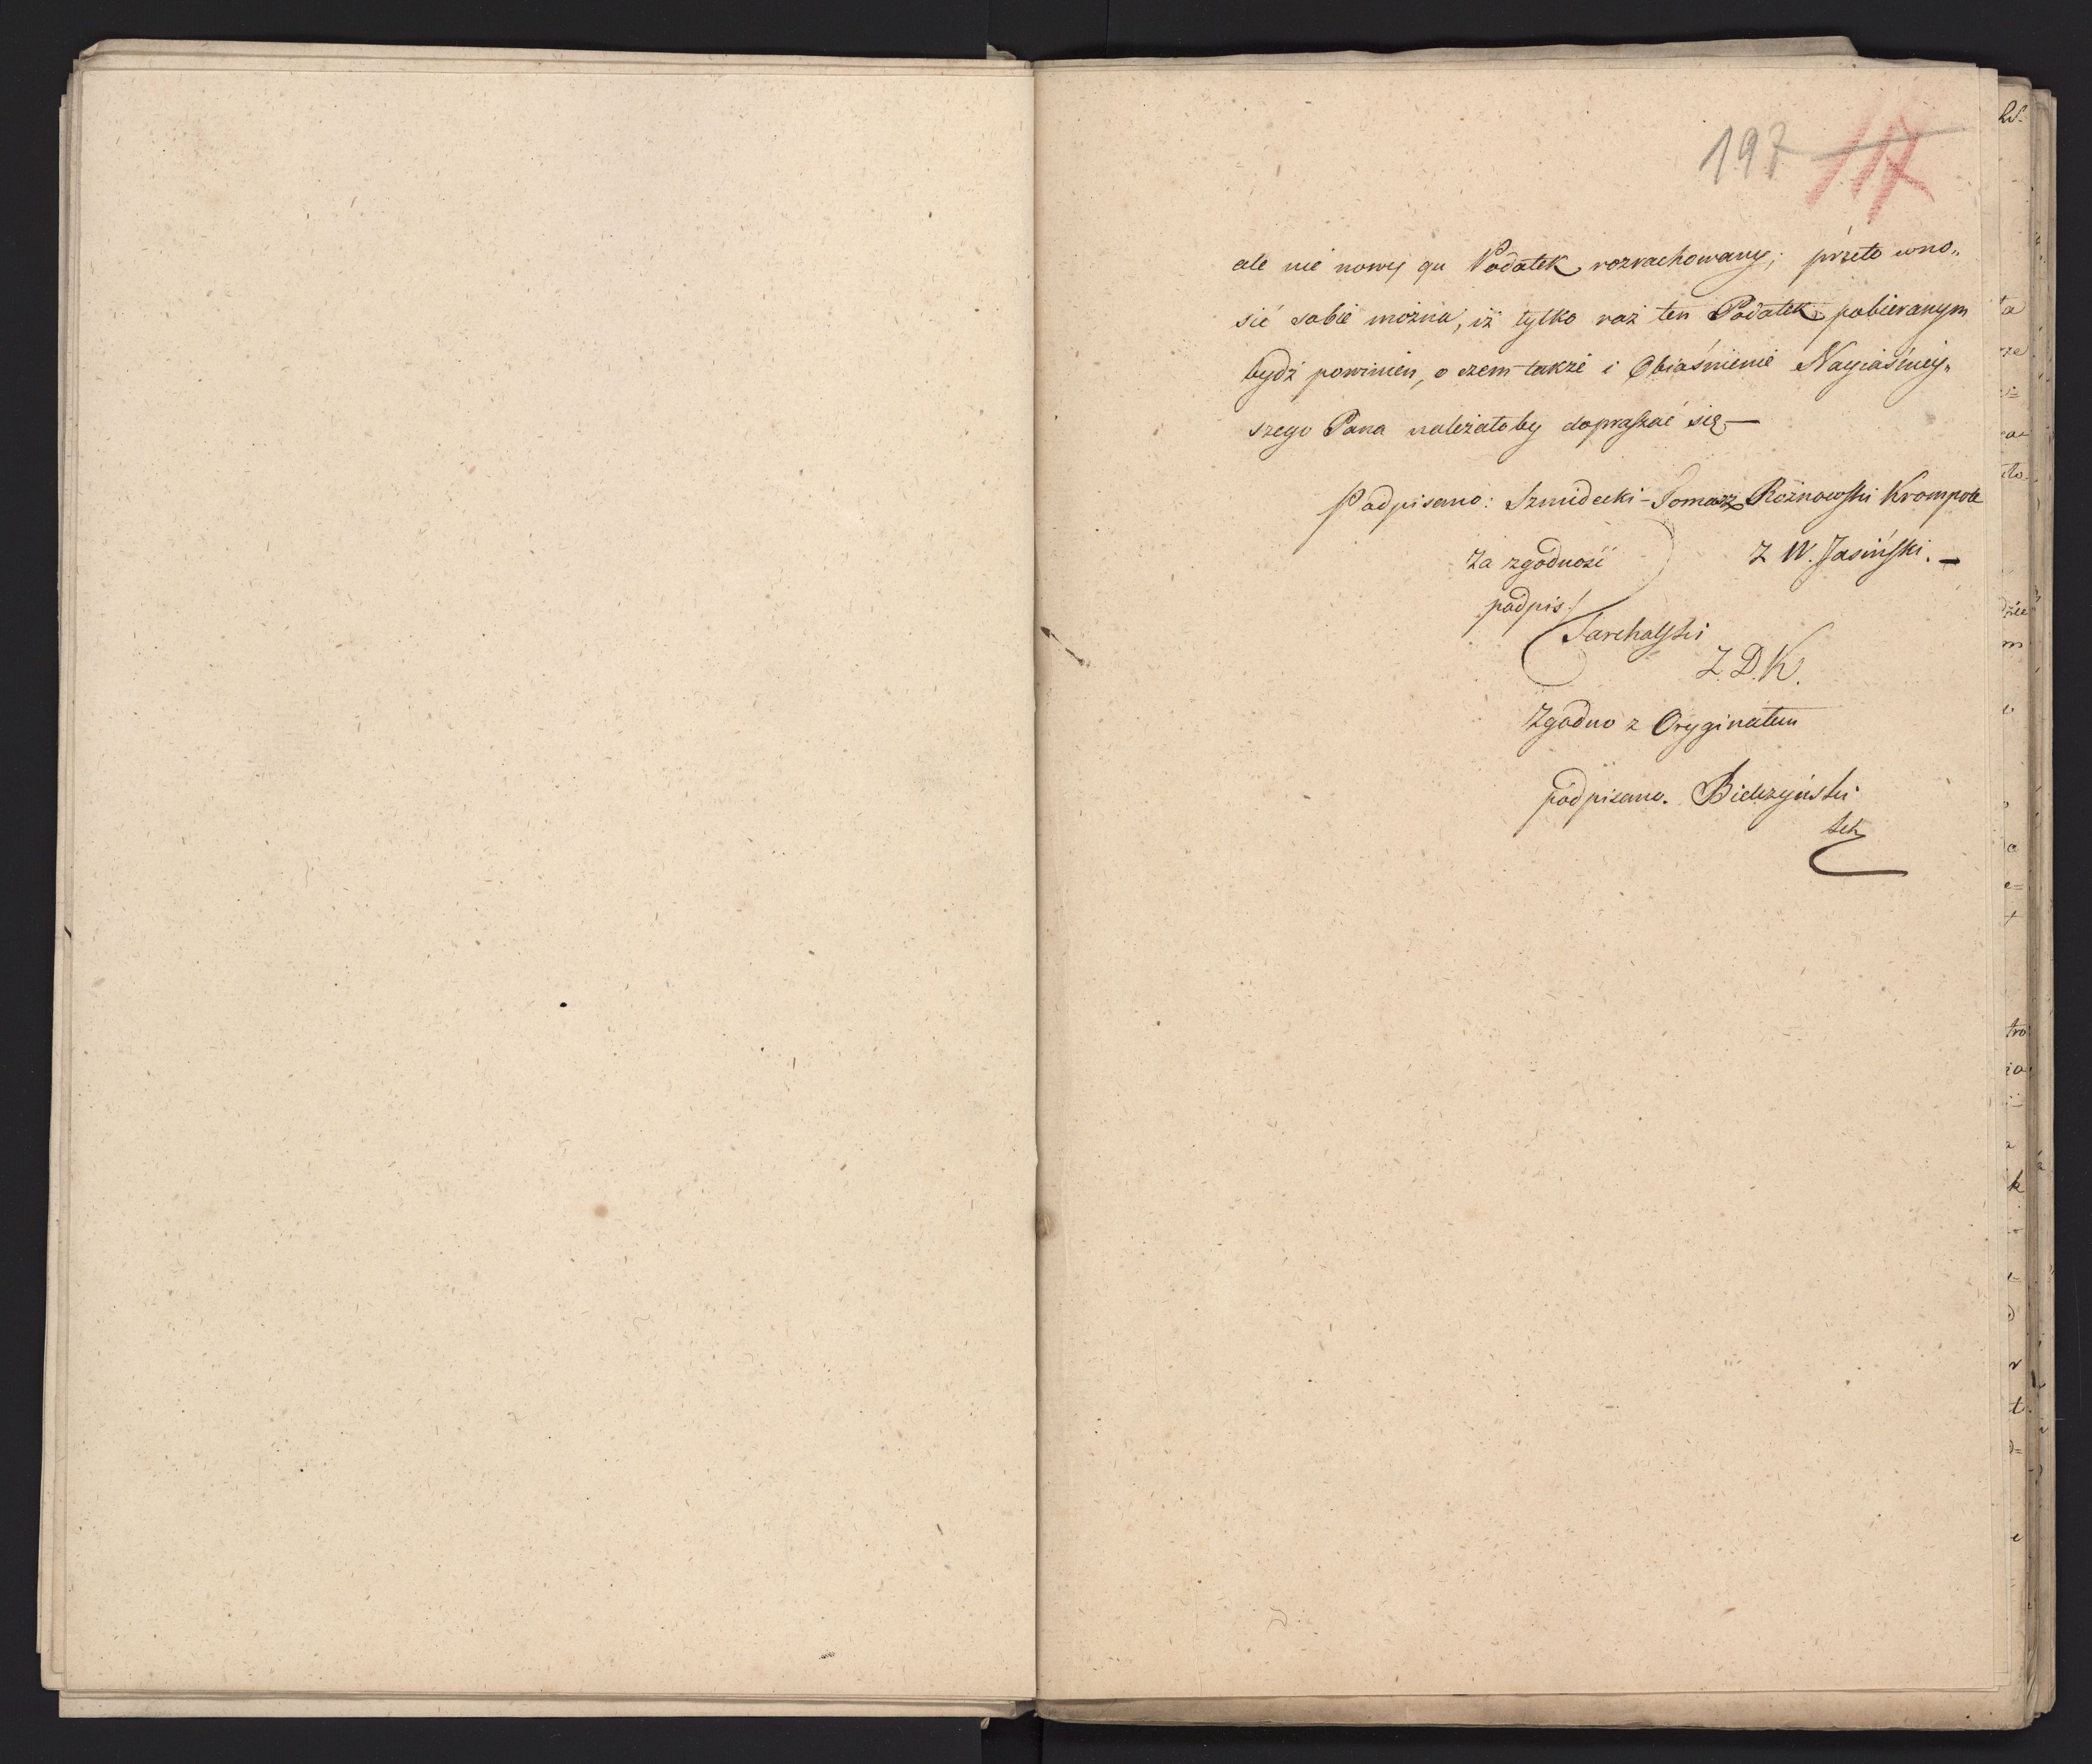 197 117
ale nie nowy gu Podatek rozrachowany; przeto wno„
sić sobie można, iż tylko raz ten Podatek pobieranym
bydź powinien, o czem także i Obiaśnienie Nayiaśniey„
szego Pana należałoby dopraszać się —
Podpisano: Szmidecki – Tomasz Rożnowski Krompole
Z W. Jasiński. —
Za zgodność
podpis/
Tarchalski
Z. D. K.
Zgodno z Oryginałem
podpisano. Bielczyński